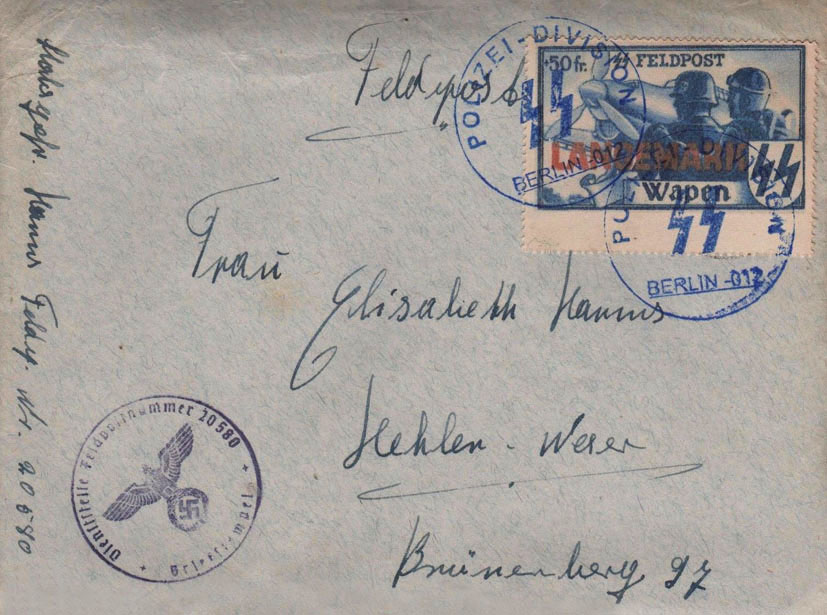 Feldpost
POLIZEI-DIVISION
BERLIN -012
50 fr. ᛋᛋ FELDPOST
LANDEMARK
Wapen
ᛋᛋ
BERLIN -012
Frau
Elisabeth Hanns
Hehlen - Weser
Brünenberg 97
Hanns Feldp. Nr. 20580
Dienststelle Feldpostnummer 20580
Briefstempel